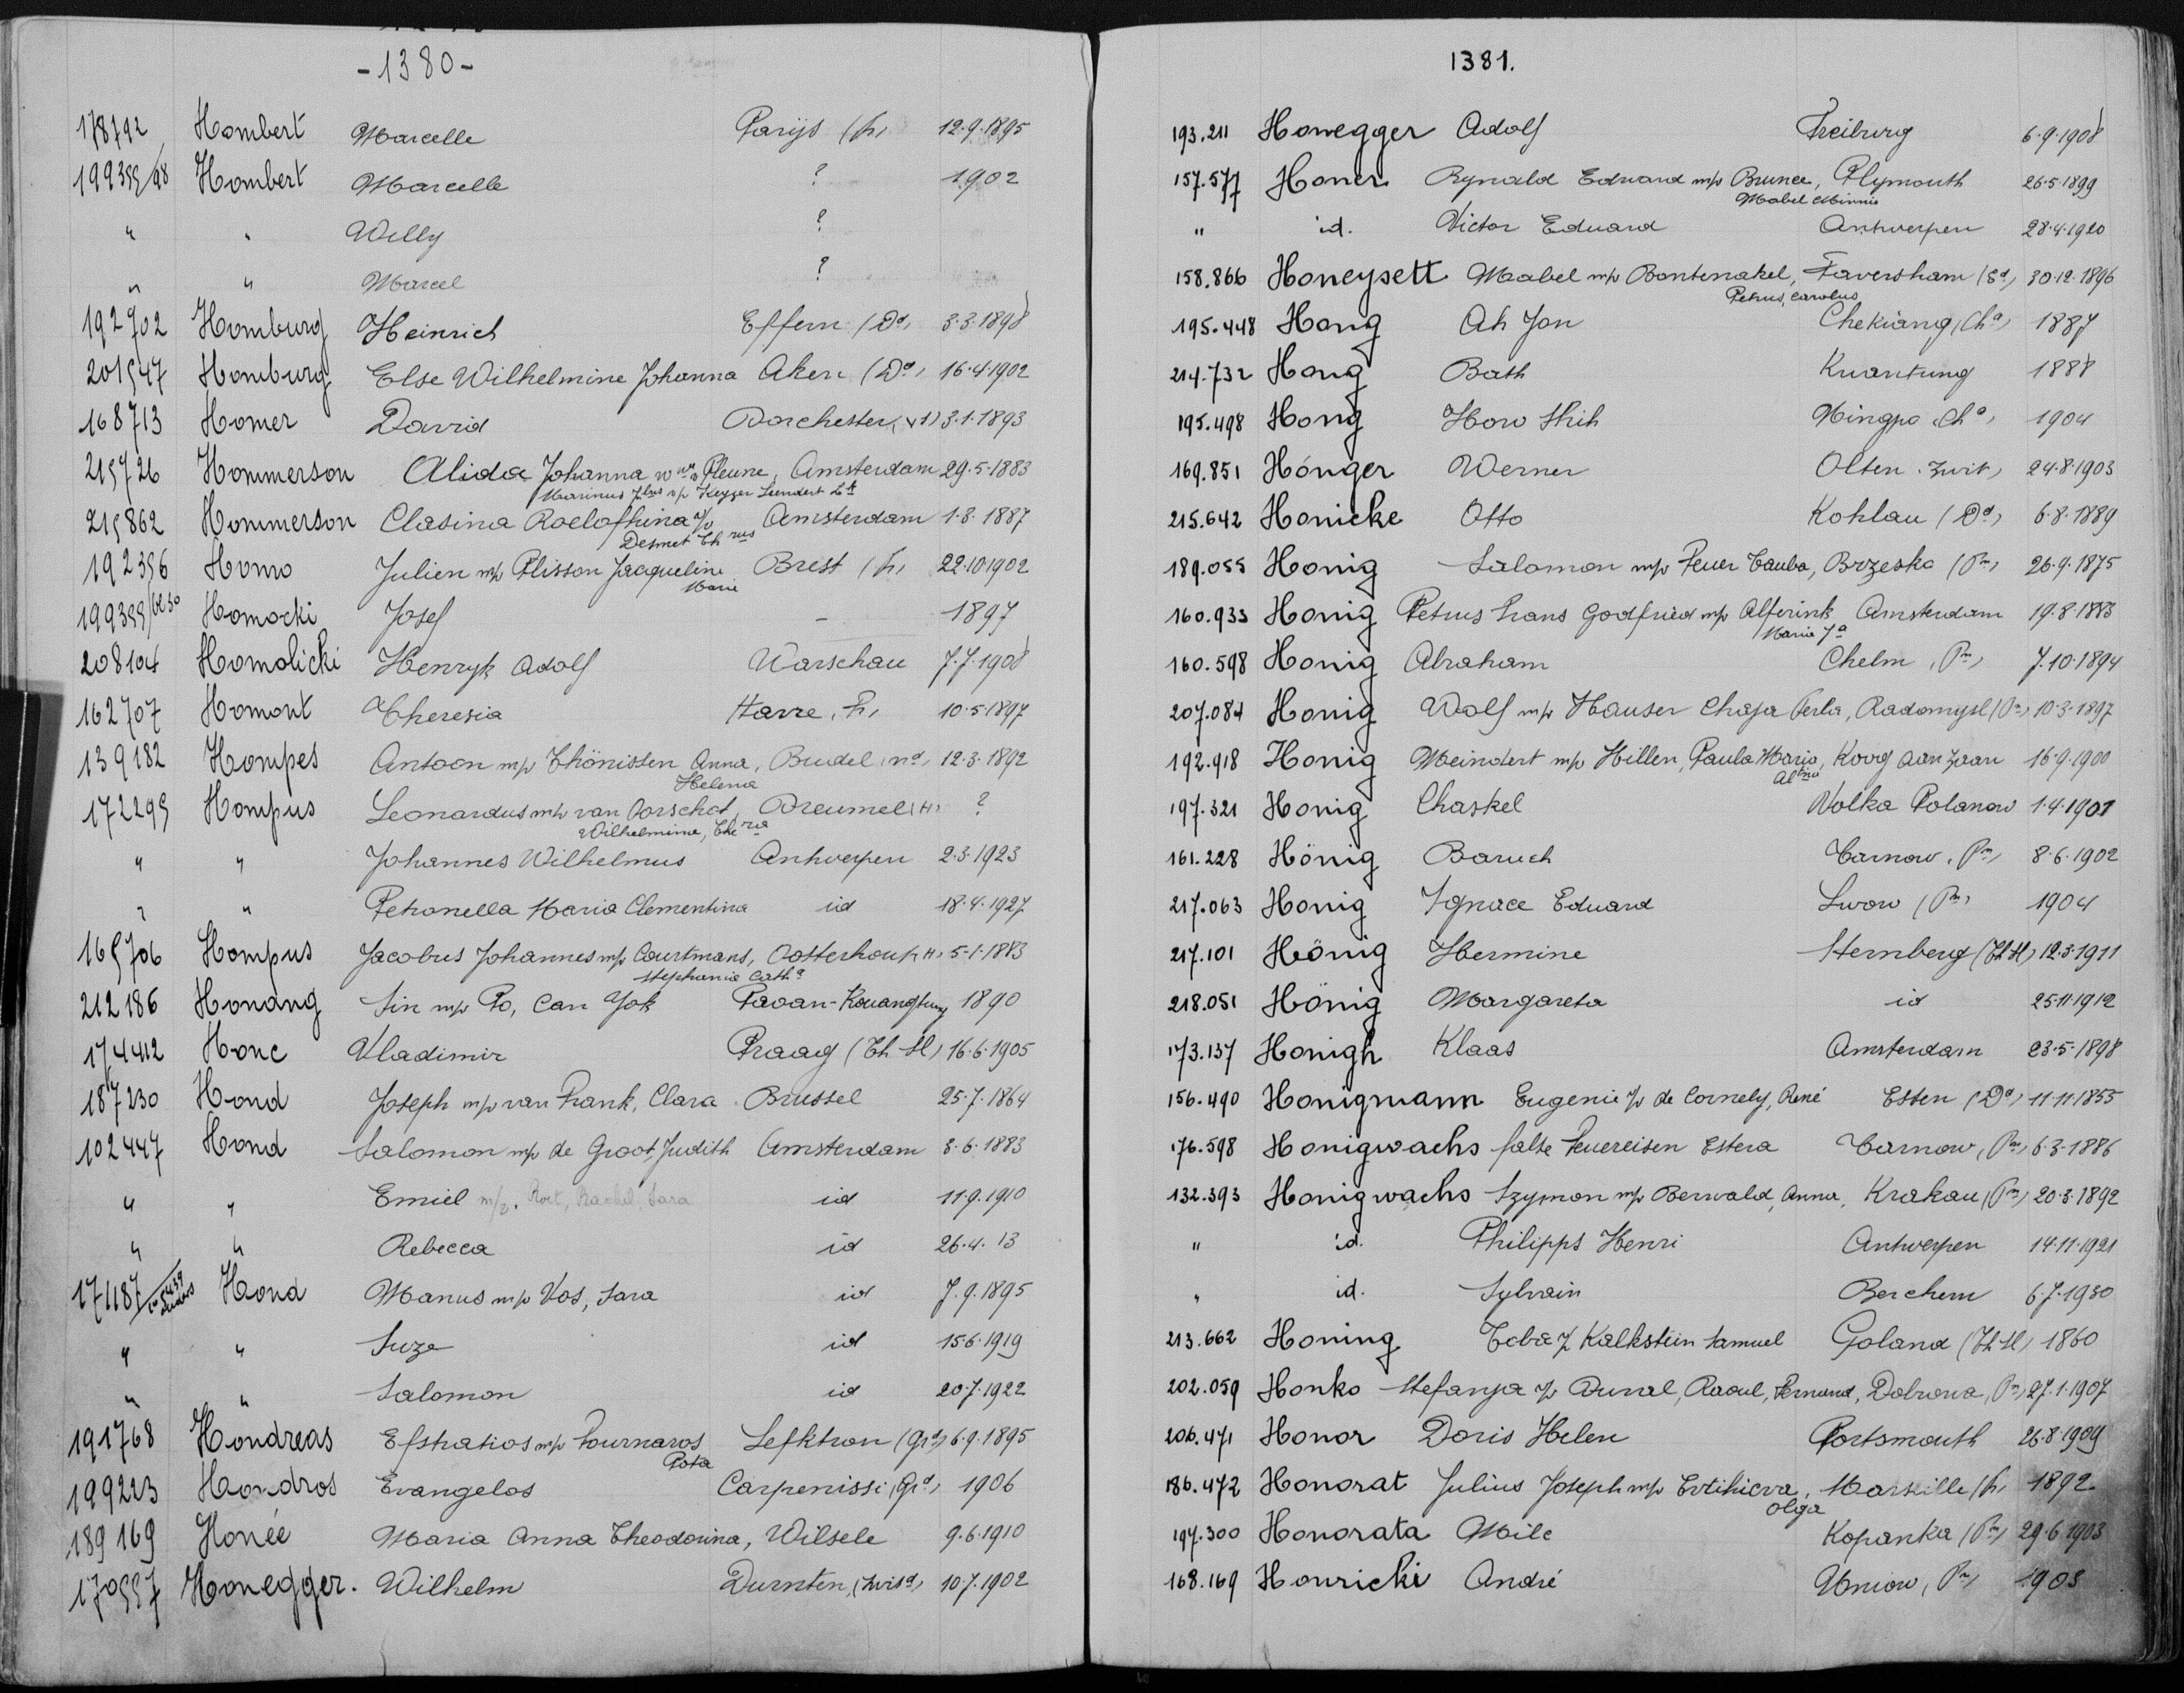 -1380-
178792 Hombert Marcelle Parijs (fr) 12.9.1895
199355/98 Hombert Marcelle ? 1902
" " Willy ?
" " Marcel ?
192702 Homburg Heinrich Effern (Dd) 3.3.1898
201547 Homburg Else Wilhelmine Johanna Aken (Dd) 16.4.1902
168713 Homer David Dorchester, 3.1.1893
215726 Hommerson Alida Johanna Pleune, Amsterdam 29.5.1883
Marinus v/v Keyzer Leendert
215862 Hommerson Clasina Roelofhina v/v Amsterdam 1.8.1887
Desmet Ch rus
192356 Homo Julien m/v Plisson Jacqueline Brest (fr) 22.10.1902
Marie
199355 Homocki Josef - 1897
208104 Homolicki Henryk Adolf Warschau 7.7.1908
162707 Homont Theresia Havre, fr, 10.5.1897
139182 Hompes Antoon m/v Thönisten Anna, Budel (nd) 12.3.1892
Helena
172295 Hompus Leonardus m/v van Oorschot, Dreumel (H) ?
Wilhelmina, The ria
" " Johannes Wilhelmus Antwerpen 2.3.1923
" " Petronella Maria Clementina id 18.4.1927
165706 Hompus Jacobus Johannes m/v Courtmans, Oosterhout (H) 5.1.1883
Stephania Catha
212186 Honang Sin m/v Po, Can Yok Paoan-Kouangtung 1890
174412 Honc Vladimir Praag (Th Sl) 16.6.1905
187230 Hond Joseph m/v van Frank, Clara Brussel 25.7.1864
102447 Hond Salomon m/v de Groot, Judith Amsterdam 8.6.1883
" " Emiel m/v. Roet, Rachel, Sara id 11.9.1910
" " Rebecca id 26.4.13
171187 Hond Manus m/v Vos, Sara id 7.9.1895
" " Suze id 15.6.1919
" " Salomon id 20.7.1922
191768 Hondreas Efstratios m/v Fournaros Lefktron (Grd) 6.9.1895
Pota
199223 Hondros Evangelos Carpenissi (Grd) 1906
189169 Honée Maria Anna Theodorina, Wilsele 9.6.1910
170557 Honegger. Wilhelm Durnten, (Zwisd) 10.7.1902
1381.
193.211 Honegger Adolf Freiburg 6.9.1908
157.577 Honer Rynald Eduard m/v Brunce, Plymouth 26.5.1899
Mabel Minnie
" id. Victor Eduard Antwerpen 28.4.1920
158.866 Honeysett Mabel m/v Bontenakel, Faversham (Ed) 30.12.1896
Petrus, Carolus
195.448 Hong Ah Jon Chekiang, (Cha) 1887
214.732 Hong Bath Kuantung 1888
195.498 Hong How Shih Ningpo (Cha) 1904
169.851 Hönger Werner Olten (Zwit) 24.8.1903
215.642 Honicke Otto Kohlau (Dd) 6.8.1889
189.055 Honig Salomon m/v Feuer Tauba, Brzesko (Pn) 26.9.1875
160.933 Honig Petrus Frans Godfried m/v Alferink Amsterdam 19.8.1883
Maria Ja
160.598 Honig Abraham Chelm (Pn) 7.10.1894
207.084 Honig Wolf m/v Hauser Chaja Perla, Radomysl (Pn) 10.3.1897
192.918 Honig Meindert m/v Hillen, Paula Maria, Koog aan Zaan 16.9.1900
197.321 Honig Chaskel Wolka Polanow 1.4.1901
161.228 Hönig Baruch Tarnow (Pn) 8.6.1902
217.063 Honig Ignace Eduard Lwow (Pn) 1904
217.101 Hönig Hermine Sternberg (Th Sl) 12.3.1911
218.051 Hönig Margareta id 25.11.1912
173.137 Honigh Klaas Amsterdam 23.5.1898
156.490 Honigmann Eugenie v/v de Cornely, René Esten (Dd) 11.11.1855
176.598 Honigwachs false Feuereisen Estera Tarnow, (Pn) 6.3.1886
132.393 Honigwachs Szymon m/v Berwald, Anna, Krakau (Pn) 20.3.1892
" id. Philipps Henri Antwerpen 14.11.1921
" id. Sylvain Berchem 6.7.1930
213.662 Honing Teba v/v Kalkstein Samuel Goland (Th Sl) 1860
202.059 Honko Stefanja v/v Durral, Raoul, Fernand, Dobrowa, (Pn) 27.1.1907
206.471 Honor Doris Helen Portsmouth 26.8.1909
186.472 Honorat Julius Joseph m/v Evtihieva, Marseille (fr) 1892
Olga
197.300 Honorata Mile Kopanka (Pn) 29.6.1903
168.169 Honricki André Uniow, (Pn) 1903